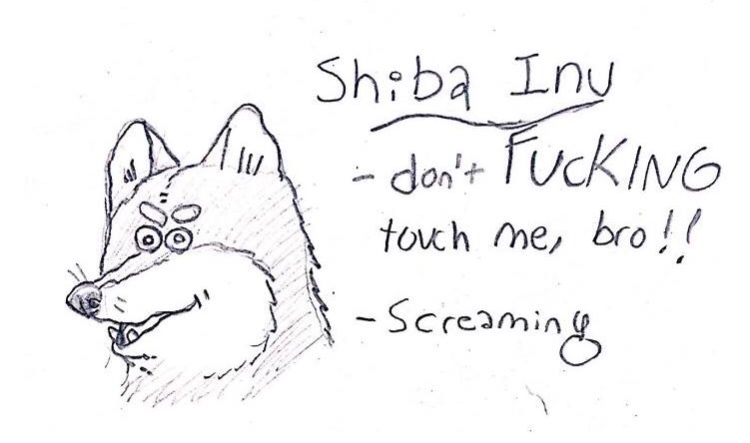 Shiba Inu
- don't FUCKING
touch me, bro!!
- Screaming